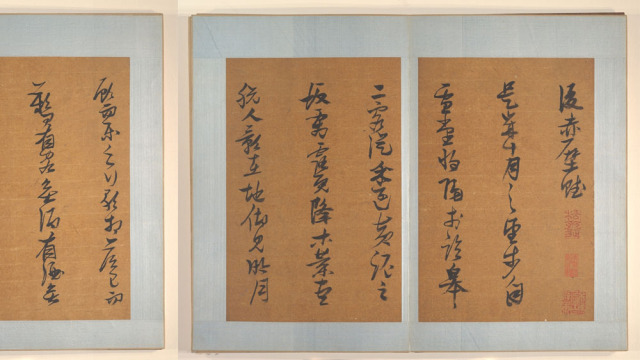 後赤壁賦
是歲十月之望步自
雪堂將歸於臨皋
二客從予過黃泥之
坂霜露既降木葉盡
脫人影在地仰見明月
顧而樂之行歌相答已而
歎曰有客無酒有酒無